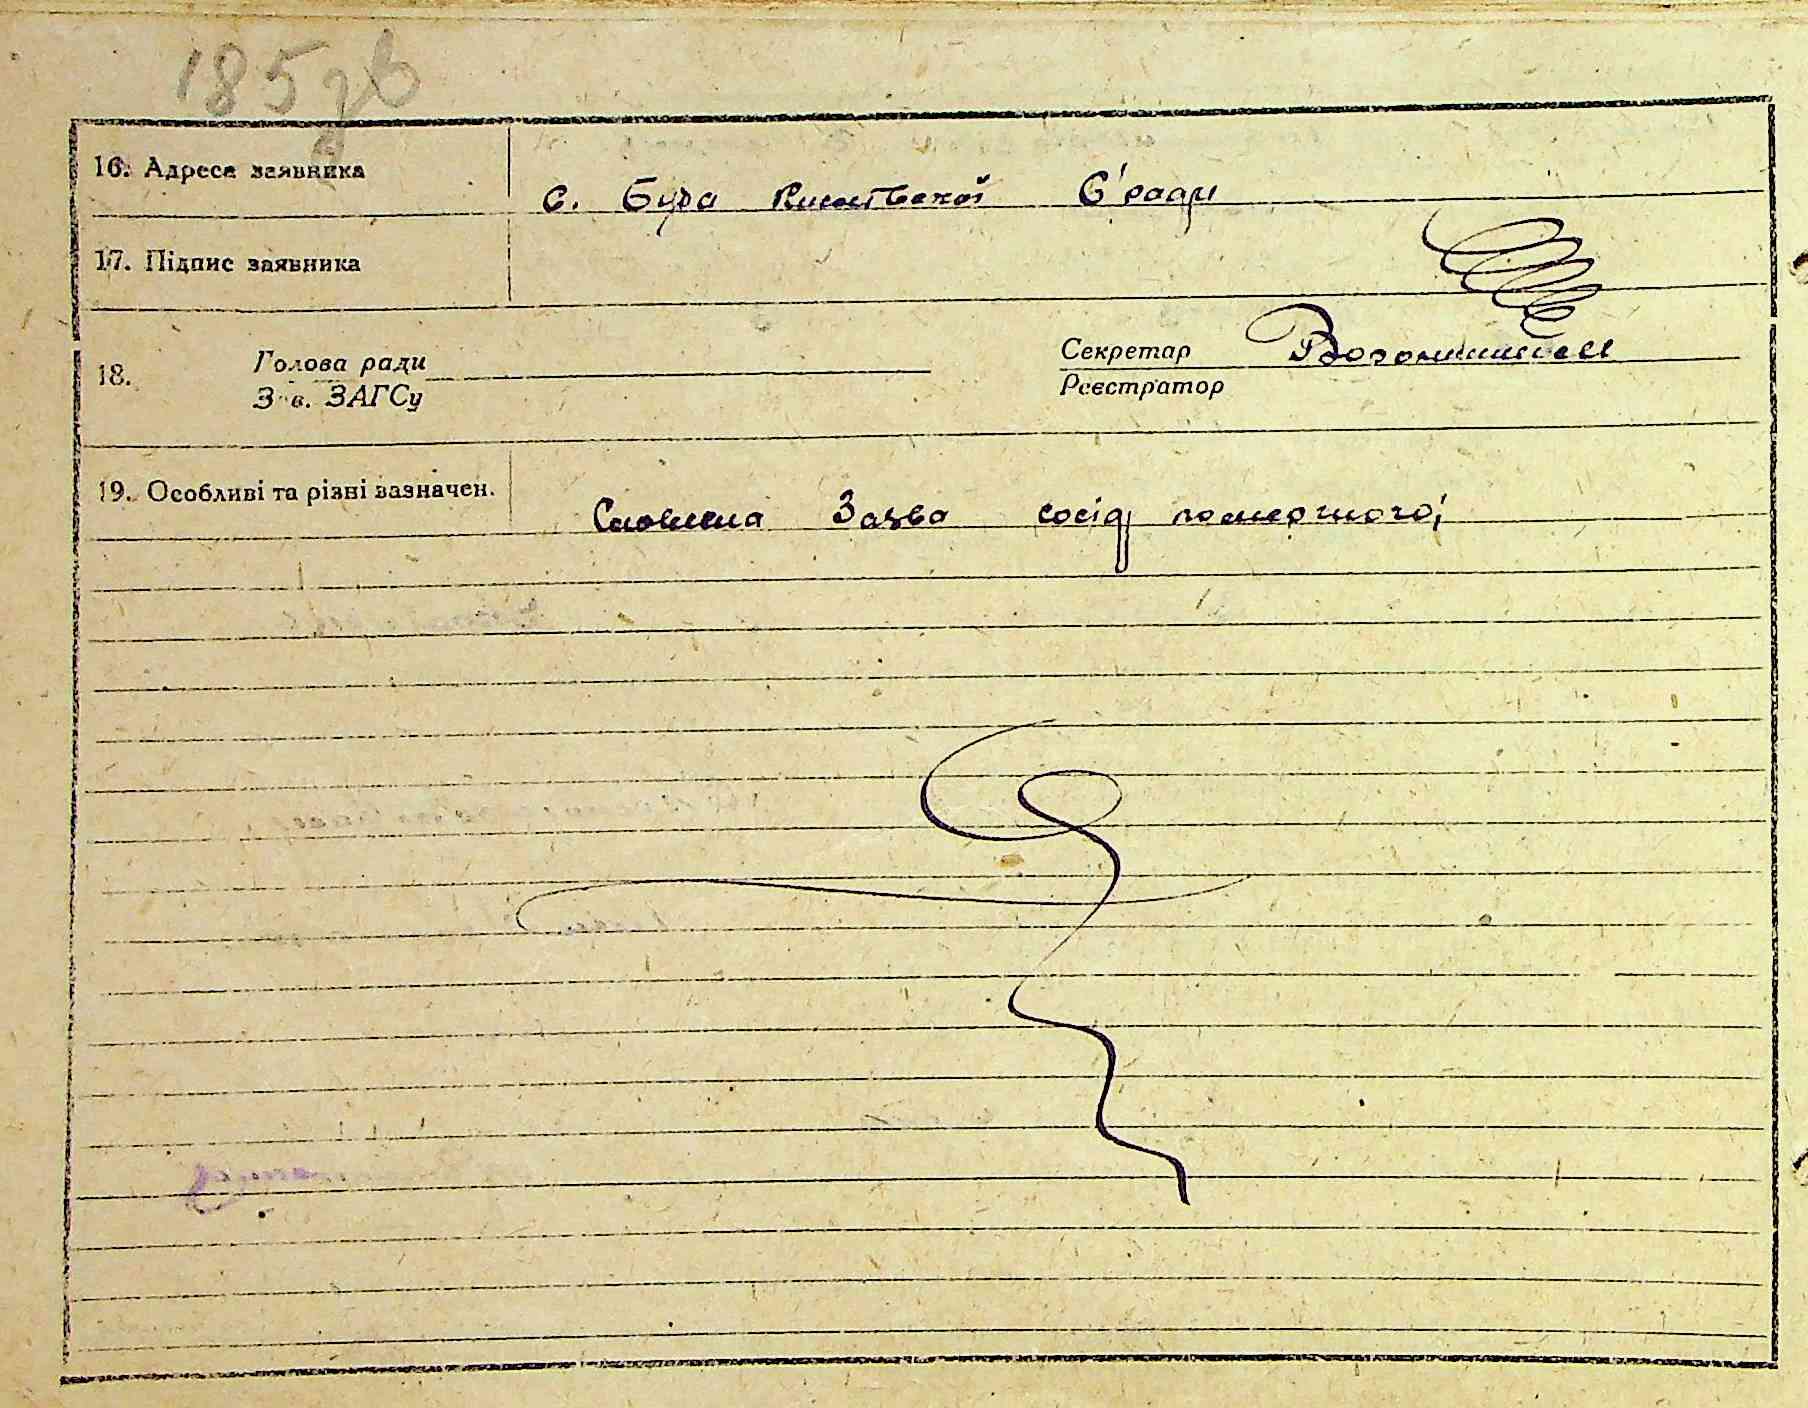 185зв
16. Адреса заявника
с. Бура С'ради
17. Підпис заявника
18. Голова ради
Зав. ЗАГСу
Секретар
Реєстратор
19. Особливі та різні зазначен.
Словесна Заява сосід помершого;